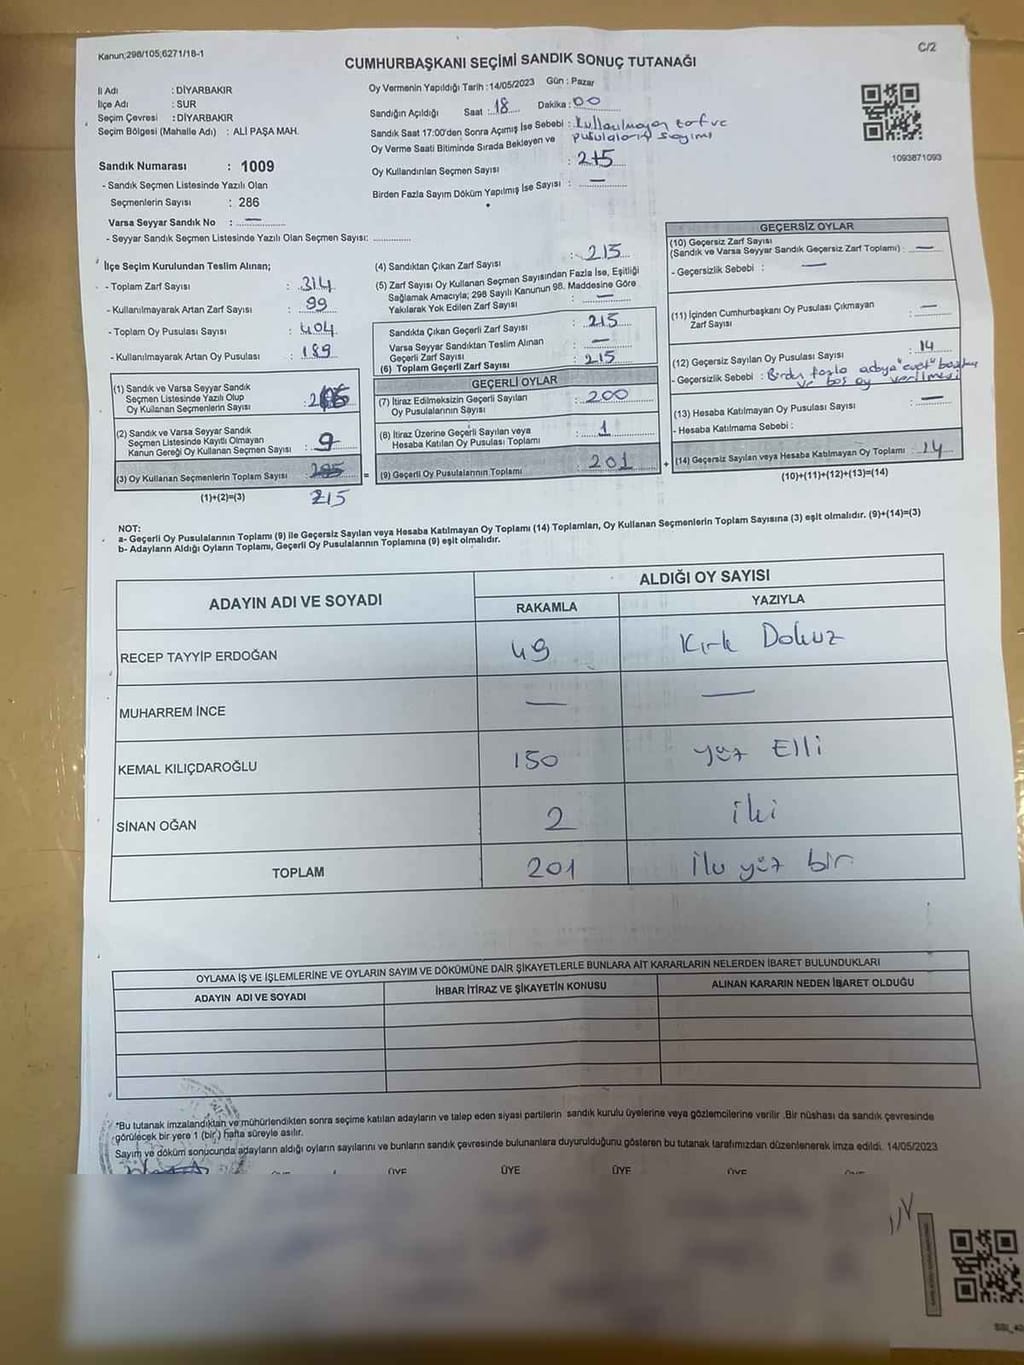 Kanun;298/105;6271/18-1
C/2
CUMHURBAŞKANI SEÇİMİ SANDIK SONUÇ TUTANAĞI
İl Adı : DİYARBAKIR
İlçe Adı : SUR
Seçim Çevresi : DİYARBAKIR
Seçim Bölgesi (Mahalle Adı) : ALİ PAŞA MAH.
Sandık Numarası : 1009
- Sandık Seçmen Listesinde Yazılı Olan
Seçmenlerin Sayısı : 286
Varsa Seyyar Sandık No : —
- Seyyar Sandık Seçmen Listesinde Yazılı Olan Seçmen Sayısı: ............
Oy Vermenin Yapıldığı Tarih :14/05/2023 Gün : Pazar
Sandığın Açıldığı Saat : 18 Dakika : 00
Sandık Saat 17:00'den Sonra Açımış İse Sebebi : Kullanılmayan zarf ve
pusulaların sayımı
Oy Verme Saati Bitiminde Sırada Bekleyen ve
Oy Kullandırılan Seçmen Sayısı : 215
Birden Fazla Sayım Döküm Yapılmış İse Sayısı : —
1093871093
İlçe Seçim Kurulundan Teslim Alınan;
- Toplam Zarf Sayısı : 314
- Kullanılmayarak Artan Zarf Sayısı : 99
- Toplam Oy Pusulası Sayısı : 404
- Kullanılmayarak Artan Oy Pusulası : 189
(1) Sandık ve Varsa Seyyar Sandık
Seçmen Listesinde Yazılı Olup
Oy Kullanan Seçmenlerin Sayısı :
(2) Sandık ve Varsa Seyyar Sandık
Seçmen Listesinde Kayıtlı Olmayan
Kanun Gereği Oy Kullanan Seçmen Sayısı : 9
(3) Oy Kullanan Seçmenlerin Toplam Sayısı :
(1)+(2)=(3) 215
(4) Sandıktan Çıkan Zarf Sayısı : 215
(5) Zarf Sayısı Oy Kullanan Seçmen Sayısından Fazla İse, Eşitliği
Sağlamak Amacıyla; 298 Sayılı Kanunun 98. Maddesine Göre
Yakılarak Yok Edilen Zarf Sayısı : —
Sandıkta Çıkan Geçerli Zarf Sayısı : 215
Varsa Seyyar Sandıktan Teslim Alınan
Geçerli Zarf Sayısı : —
(6) Toplam Geçerli Zarf Sayısı : 215
GEÇERLİ OYLAR
(7) İtiraz Edilmeksizin Geçerli Sayılan
Oy Pusulalarının Sayısı : 200
(8) İtiraz Üzerine Geçerli Sayılan veya
Hesaba Katılan Oy Pusulası Toplamı : 1
= (9) Geçerli Oy Pusulalarının Toplamı : 201
GEÇERSİZ OYLAR
(10) Geçersiz Zarf Sayısı
(Sandık ve Varsa Seyyar Sandık Geçersiz Zarf Toplamı) : —
- Geçersizlik Sebebi : —
(11) İçinden Cumhurbaşkanı Oy Pusulası Çıkmayan
Zarf Sayısı : —
(12) Geçersiz Sayılan Oy Pusulası Sayısı : 14
- Geçersizlik Sebebi : Birden fazla adaya "evet"
ve boş oy verilmesi
(13) Hesaba Katılmayan Oy Pusulası Sayısı : —
- Hesaba Katılmama Sebebi :
+ (14) Geçersiz Sayılan veya Hesaba Katılmayan Oy Toplamı : 14
(10)+(11)+(12)+(13)=(14)
NOT:
a- Geçerli Oy Pusulalarının Toplamı (9) ile Geçersiz Sayılan veya Hesaba Katılmayan Oy Toplamı (14) Toplamları, Oy Kullanan Seçmenlerin Toplam Sayısına (3) eşit olmalıdır. (9)+(14)=(3)
b- Adayların Aldığı Oyların Toplamı, Geçerli Oy Pusulalarının Toplamına (9) eşit olmalıdır.
ADAYIN ADI VE SOYADI
ALDIĞI OY SAYISI
RAKAMLA YAZIYLA
RECEP TAYYİP ERDOĞAN 49 Kırk Dokuz
MUHARREM İNCE — —
KEMAL KILIÇDAROĞLU 150 Yüz Elli
SİNAN OĞAN 2 iki
TOPLAM 201 iki yüz bir
OYLAMA İŞ VE İŞLEMLERİNE VE OYLARIN SAYIM VE DÖKÜMÜNE DAİR ŞİKAYETLERLE BUNLARA AİT KARARLARIN NELERDEN İBARET BULUNDUKLARI
ADAYIN ADI VE SOYADI İHBAR İTİRAZ VE ŞİKAYETİN KONUSU ALINAN KARARIN NEDEN İBARET OLDUĞU
*Bu tutanak imzalandıktan ve mühürlendikten sonra seçime katılan adayların ve talep eden siyasi partilerin sandık kurulu üyelerine veya gözlemcilerine verilir. Bir nüshası da sandık çevresinde
görülecek bir yere 1 (bir) hafta süreyle asılır.
Sayım ve döküm sonucunda adayların aldığı oyların sayılarını ve bunların sandık çevresinde bulunanlara duyurulduğunu gösteren bu tutanak tarafımızdan düzenlenerek imza edildi. 14/05/2023
ÜYE ÜYE ÜYE ÜYE